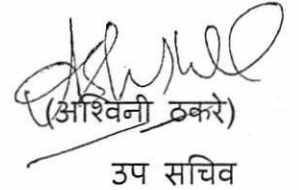 (अश्विनी ठकरे)
उप सचिव